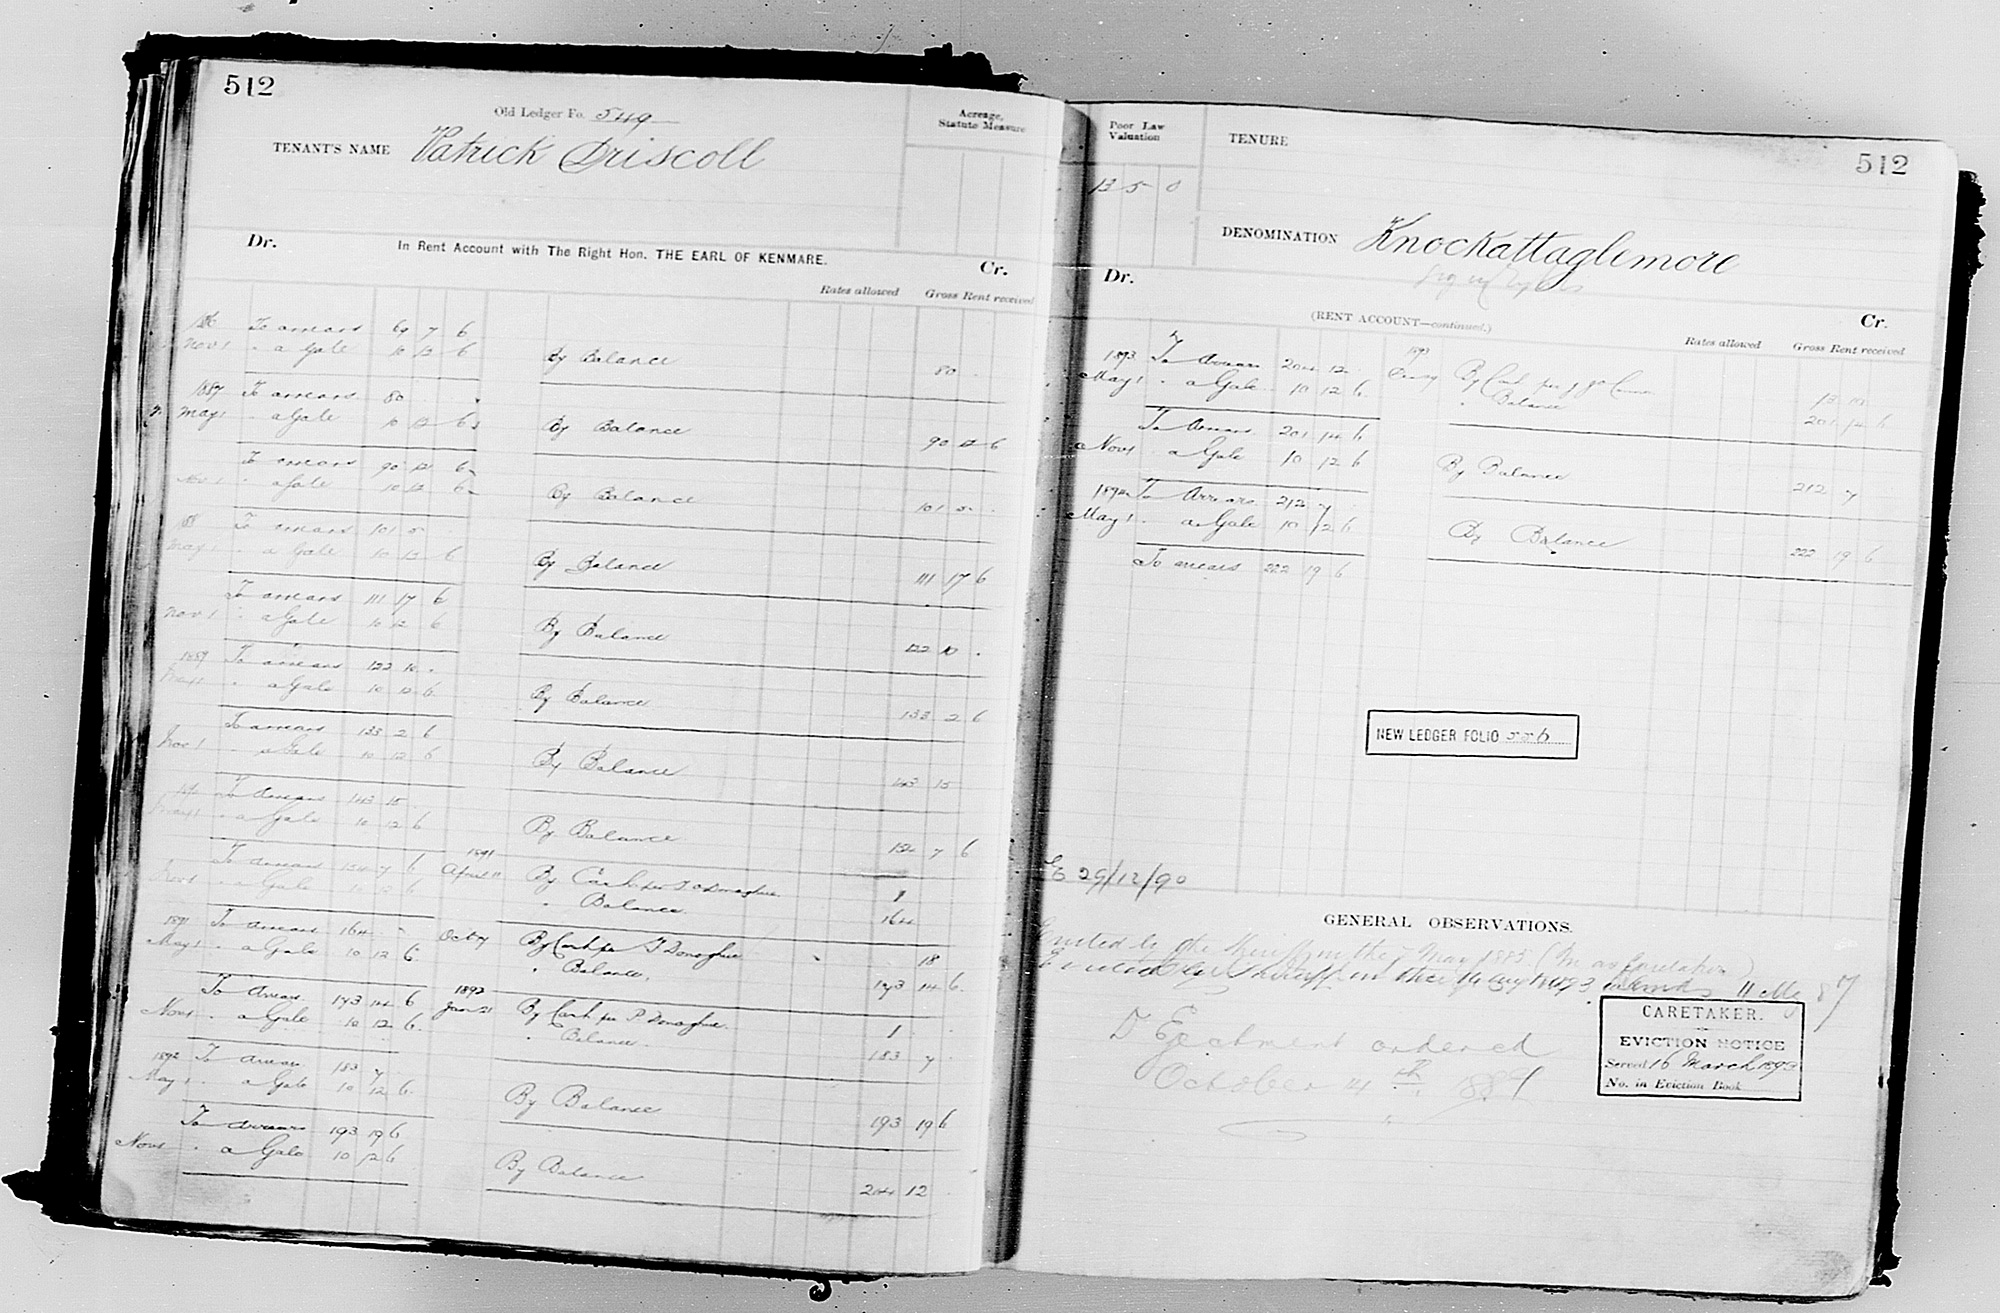 512
Old Ledger Fo. 549
Acreage, Statute Measure
TENANT'S NAME Patrick Driscoll
Dr. In Rent Account with The Right Hon. THE EARL OF KENMARE. Cr.
Rates allowed Gross Rent received
To arrears 69 7 6
Nov 1 " a Gale 10 12 6 By Balance 80
1887 To arrears 80
May 1 " a Gale 10 12 6 By Balance 90 12 6
To arrears 90 12 6
" a Gale 10 12 6 By Balance 101 5
To arrears 101 5
May 1 " a Gale 10 12 6 By Balance 111 17 6
To arrears 111 17 6
Nov 1 " a Gale 10 12 6 By Balance 122 10
1889 To arrears 122 10
May 1 " a Gale 10 12 6 By Balance 133 2 6
To arrears 133 2 6
Nov 1 " a Gale 10 12 6 By Balance 143 15
To arrears 143 15
May 1 " a Gale 10 12 6 By Balance 154 7 6
To arrears 154 7 6 1891 April 11 By Cash per T O'Donoghue 1
Nov 1 " a Gale 10 12 6 " Balance 164
1891 To arrears 164 Oct 7 By Cash per T Donoghue 18
May 1 " a Gale 10 12 6 " Balance 173 14 6
To arrears 173 14 6 1892 Jan 21 By Cash per P Donoghue 1
Nov 1 " a Gale 10 12 6 " Balance 183 7
1892 To arrears 183 7
May 1 " a Gale 10 12 6 By Balance 193 19 6
To arrears 193 19 6
Nov 1 " a Gale 10 12 6 By Balance 204 12
Poor Law Valuation
13 5 0
TENURE
512
DENOMINATION Knockattaglemore
Dr. (RENT ACCOUNT—continued.) Cr.
Rates allowed Gross Rent received
1893 To Arrears 204 12 1893 By Cash per 13 10
May 1 " a Gale 10 12 6 " Balance 201 14 6
To Arrears 201 14 6
Nov 1 " a Gale 10 12 6 By Balance 212 7
1894 To Arrears 212 7
May 1 " a Gale 10 12 6 By Balance 222 19 6
To arrears 222 19 6
NEW LEDGER FOLIO 556
29/12/90
GENERAL OBSERVATIONS.
Evicted by the Sheriff on the 7 May 1885 (In as Caretaker)
Evicted by Sheriff on the 14 Aug 1893
Ejectment ordered
October 4th 1889
CARETAKER.
EVICTION NOTICE
Served 16 March 1893
No. in Eviction Book